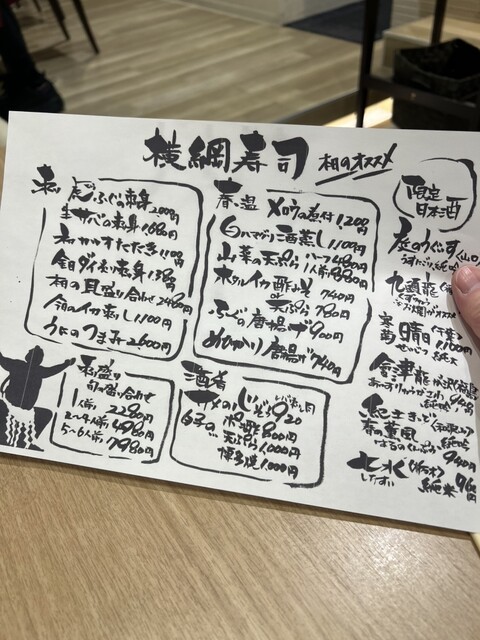 横綱寿司 相のオススメ
刺
虎ふぐの刺身 2000円
生サバの刺身 1680円
初カツオたたき 1100円
金目ダイ 刺身 1380円
相の貝盛り合わせ 2480円
今日のイカ刺し 1100円
うにのつまみ 2600円
春・温
メロウの煮付 1200円
白ハマグリ酒蒸し 1100円
山菜の天ぷら 1人前 880円
ホタルイカ 酢みそ 740円
天ぷら 780円
ふぐの唐揚げ 900円
めひかり 唐揚げ 740円
刺盛り
旬の盛り合わせ
1人前 2280円
2〜4人前 4980円
5〜6人前 7980円
酒肴
白子の ポン酢 800円
天ぷら 1,000円
博多焼 1,000円
限定
日本酒
庭のうぐいす
うすにごり
九頭龍
くずりゅう
寒菊 晴
1100円
せいっ 純米
会津龍が沢
紀土 きっど
春の薫風
はるのくんぷう 純吟
940円
北水
純米